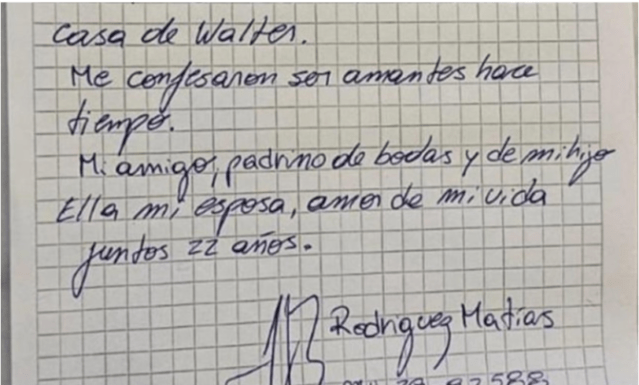 Casa de Walter.
Me confesaron ser amantes hace
tiempo.
Mi amigo, padrino de bodas y de mi hijo
Ella mi esposa, amor de mi vida
juntos 22 años.
Rodriguez Matias